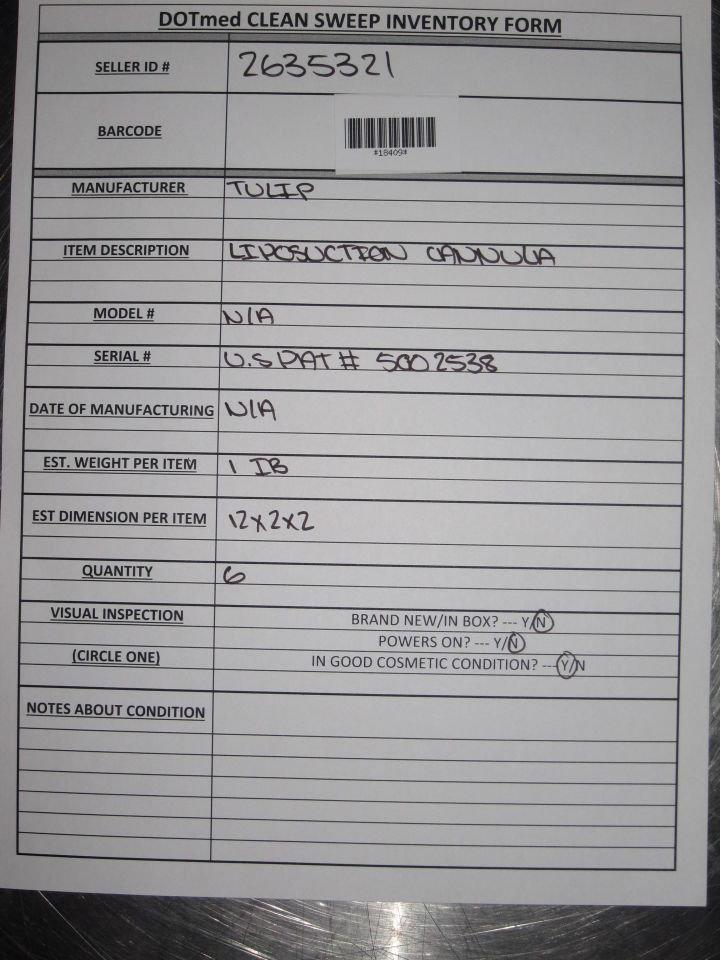 DOTmed CLEAN SWEEP INVENTORY FORM
SELLER ID # 2635321
BARCODE
*18409*
MANUFACTURER TULIP
ITEM DESCRIPTION LIPOSUCTION CANNULA
MODEL # N/A
SERIAL # U.S PAT # 5002538
DATE OF MANUFACTURING N/A
EST. WEIGHT PER ITEM 1 IB
EST DIMENSION PER ITEM 12x2x2
QUANTITY 6
VISUAL INSPECTION BRAND NEW/IN BOX? --- Y/N
POWERS ON? --- Y/N
(CIRCLE ONE) IN GOOD COSMETIC CONDITION? ---Y/N
NOTES ABOUT CONDITION